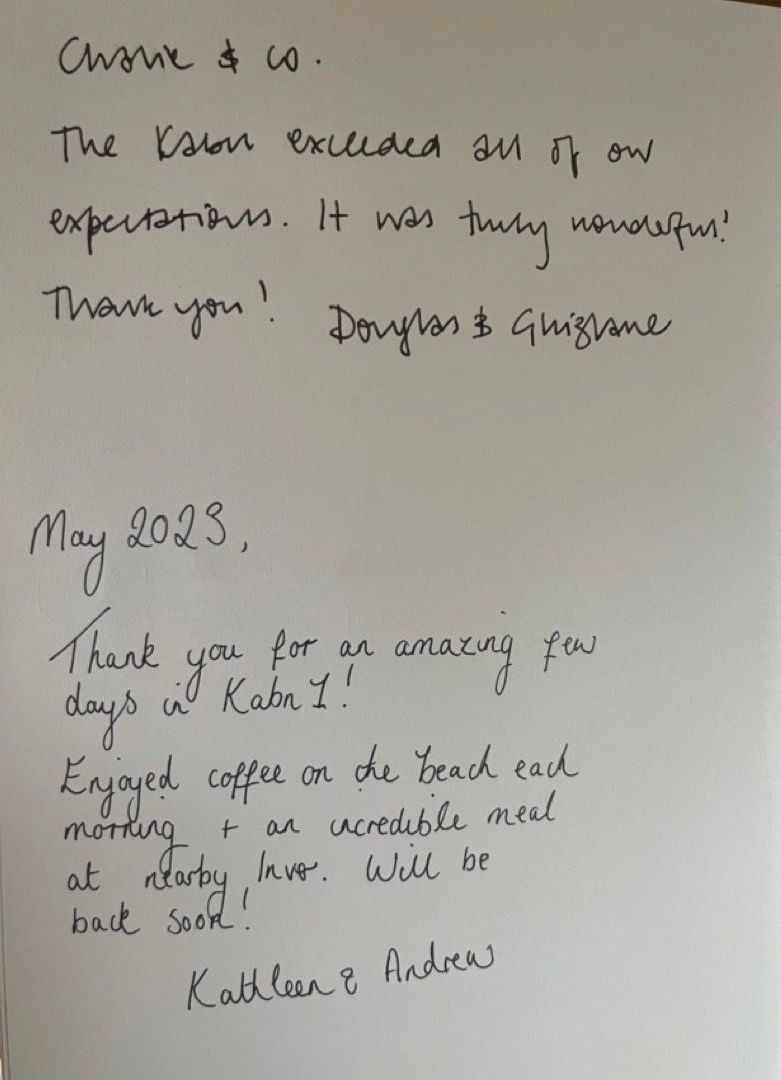 Charlie & co.
The Kabn exceeded all of our
expectations. It was truly wonderful!
Thank you! Douglas & Ghizlane
May 2023,
Thank you for an amazing few
days in Kabn 1!
Enjoyed coffee on the beach each
morning + an incredible meal
at nearby Inver. Will be
back soon!
Kathleen & Andrew